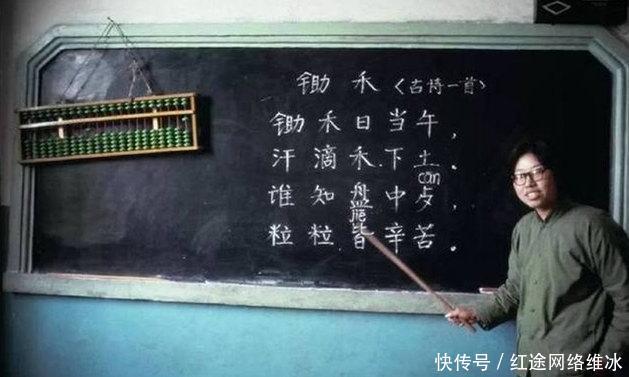 锄 禾〈古诗一首〉
锄禾日当午，
汗滴禾下土。
can
谁知盘中歺，
粒粒皆辛苦。
快传号 / 红途网络维冰